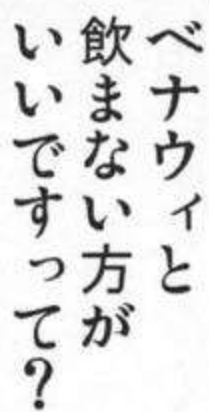 ベナウィと
飲まない方が
いいですって？